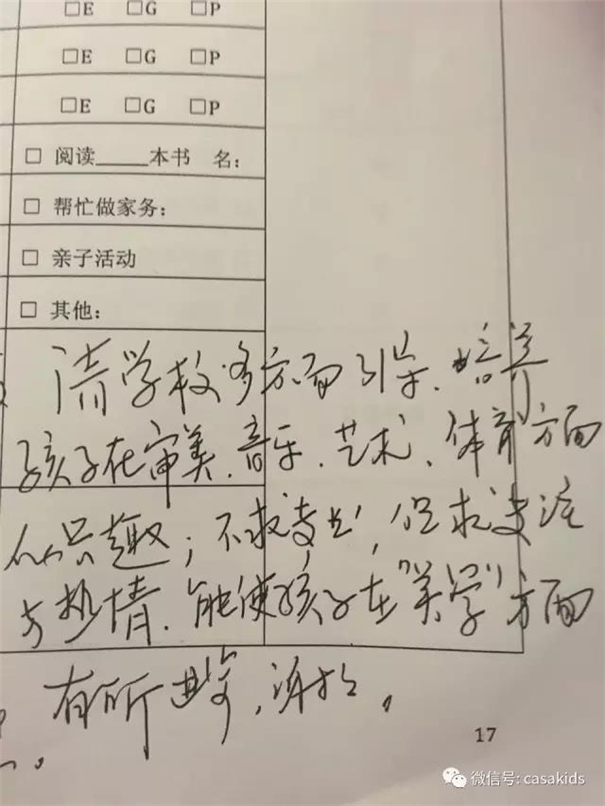 □E □G □P
□E □G □P
□E □G □P
□ 阅读____本书 名：
□ 帮忙做家务：
□ 亲子活动
□ 其他：
请学校多方面引导、培养
孩子在审美、音乐、艺术、体育方面
趣；不求，但求注
与热情。能使孩子在"美学"方面
有所，谢谢。
17
微信号: casakids